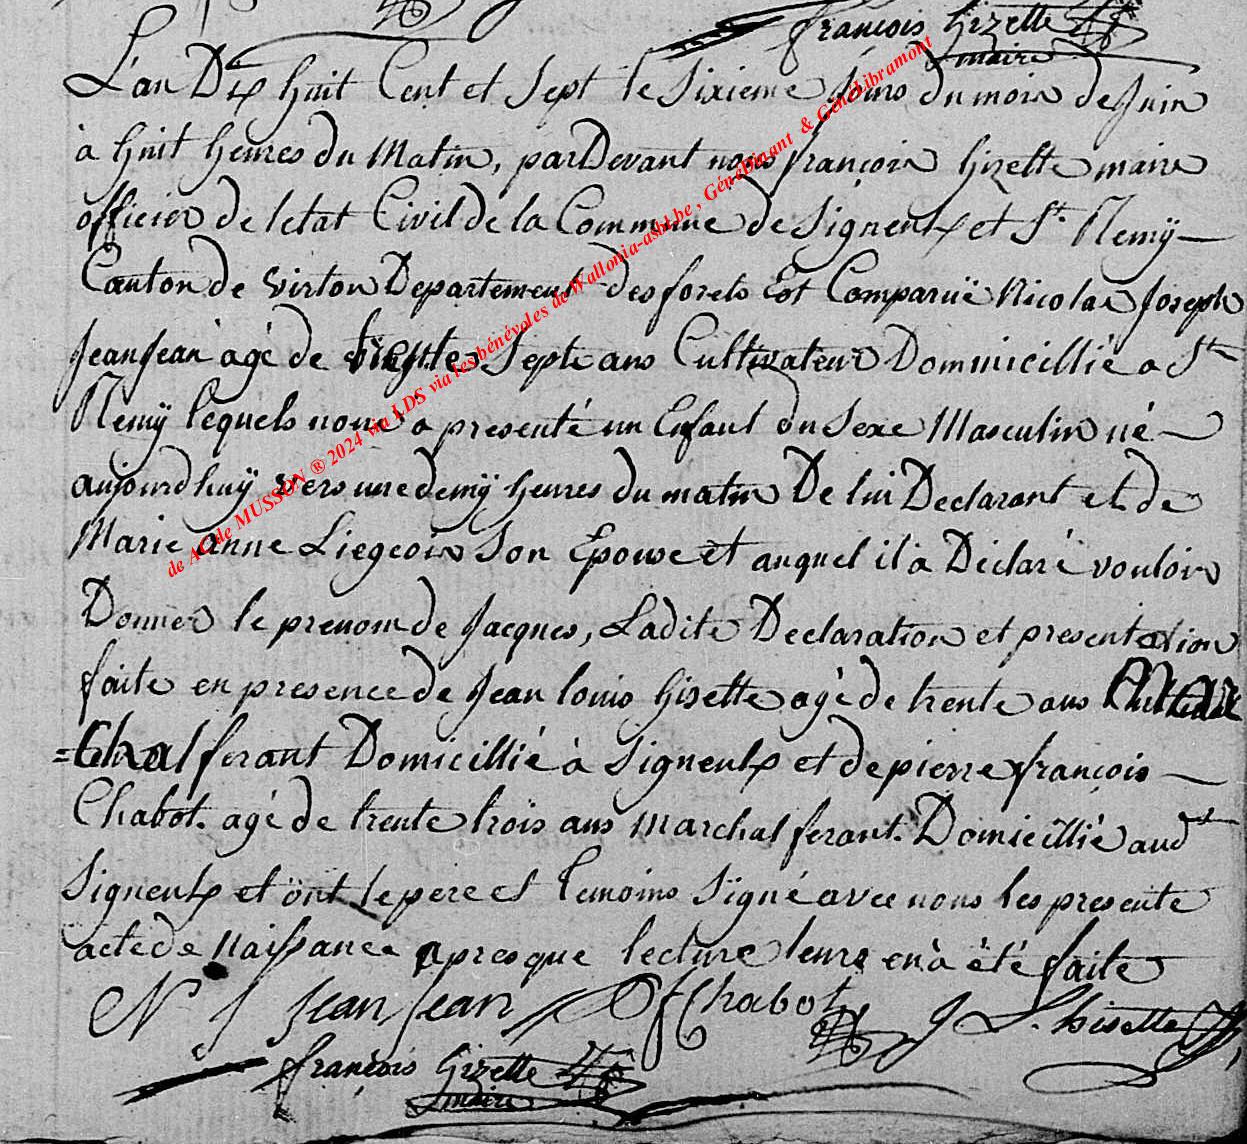 françois Gizette
maire
L'an Dix huit Cent et Sept le Sixieme Jours du mois de Juin
à huit heures du Matin, par Devant nous françois Gizette maire
officier de letat Civil de la Commune de Signeulx et St. Remÿ
Canton de Virton Departement des forets Est Comparuë Nicolas Joseph
JeanJean agé de trente Sept ans Cultivateur Dommicillié a St
Remÿ lequels nous à presenté un Enfant du Sexe Masculin né
aujourdhuÿ vers une demÿ heures du matin De lui Declarant et de
Marie anne Liegeois Son Epouse et auquel il à Déclaré vouloir
Donner le prenom de Jacques, Ladite Declaration et presentation
faite en presence de Jean louis Gisette agé de trente ans Mar
=Chal ferant Domicillié à Signeulx et de pierre françois
Chabot. agé de trente trois ans Marchal ferant. Domicillié aud
Signeulx et ont le pere et temoins Signé avec nous les presente
acte de Naissance apres que lecture leurs en à été faite
N J JeanJean Pf Chabot J L. Gisette
françois Gizette
maire
de AC de MUSSON ® 2024 via LDS via les bénévoles de Wallonia-asbl.be , GénéDinant & GénéLibramont